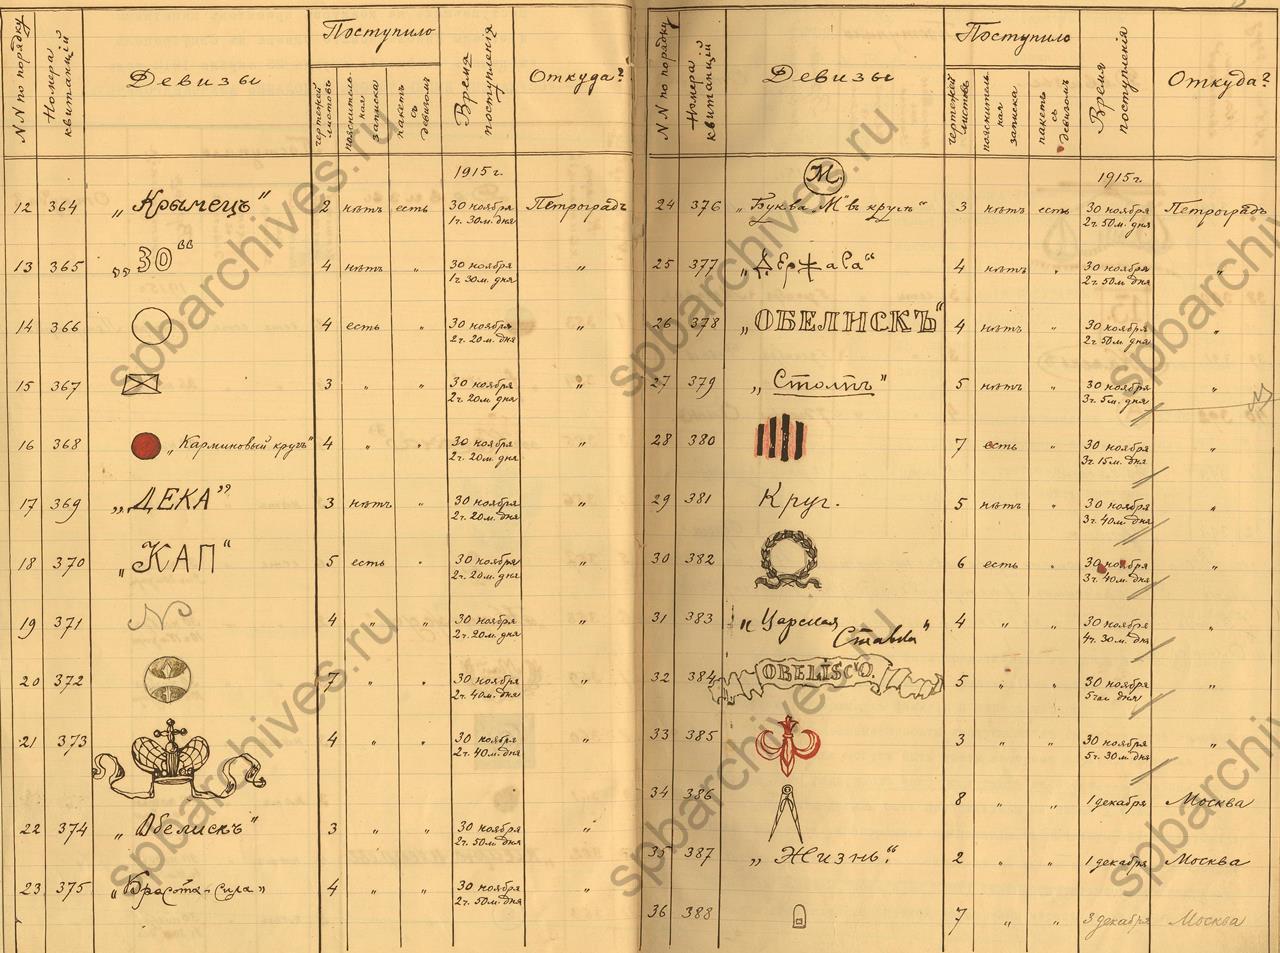 N.N по порядку Номера квитанцій Девизы Поступило Время поступленія Откуда?
чертежей листовъ пояснительная записка пакетъ съ девизомъ
1915 г.
12 364 „Крымецъ" 2 нѣтъ есть 30 ноября 1ч. 30м. дня Петроградъ
13 365 „30" 4 нѣтъ „ 30 ноября 1ч 30м. дня „
14 366 4 есть „ 30 ноября 2ч. 20м. дня „
15 367 3 „ „ 30 ноября 2ч. 20м дня „
16 368 „Карминовый кругъ" 4 „ „ 30 ноября 2ч. 20м. дня „
17 369 „ДЕКА" 3 нѣтъ „ 30 ноября 2ч. 20м. дня „
18 370 „КАП" 5 есть „ 30 ноября 2ч. 20м. дня „
19 371 N 4 „ „ 30 ноября 2ч. 20м. дня „
20 372 7 „ „ 30 ноября 2ч. 40м. дня „
21 373 4 „ „ 30 ноября 2ч. 40м. дня „
22 374 „Обелискъ" 3 „ „ 30 ноября 2ч. 50м. дня „
23 375 „Красота-сила" 4 „ „ 30 ноября 2ч. 50м. дня „
N.N по порядку Номера квитанцій Девизы Поступило Время поступленія Откуда?
чертежей листовъ пояснительная записка пакетъ съ девизомъ
М. 1915 г.
24 376 „Буква „М" въ кругѣ" 3 нѣтъ есть 30 ноября 2ч. 50м. дня Петроградъ
25 377 „Держава" 4 нѣтъ „ 30 ноября 2ч. 50м дня „
26 378 „ОБЕЛИСКЪ" 4 нѣтъ „ 30 ноября 2ч. 50м. дня „
27 379 „Столпъ" 5 нѣтъ „ 30 ноября 3ч. 5м. дня „
28 380 7 есть „ 30 ноября 3ч. 15м. дня „
29 381 Круг. 5 нѣтъ „ 30 ноября 3ч. 40м. дня „
30 382 6 есть „ 30 ноября 3ч. 40м. дня „
31 383 „Царская Ставка" 4 „ „ 30 ноября 4ч. 30м. дня „
32 384 OBELISCO. 5 „ „ 30 ноября 5 час дня „
33 385 3 „ „ 30 ноября 5ч. 30м. дня „
34 386 8 „ „ 1 декабря Москва
35 387 „Жизнь". 2 „ „ 1 декабря Москва
36 388 7 „ „ 3 декабря Москва
spbarchives.ru
spbarchives.ru
spbarchives.ru
spbarchives.ru